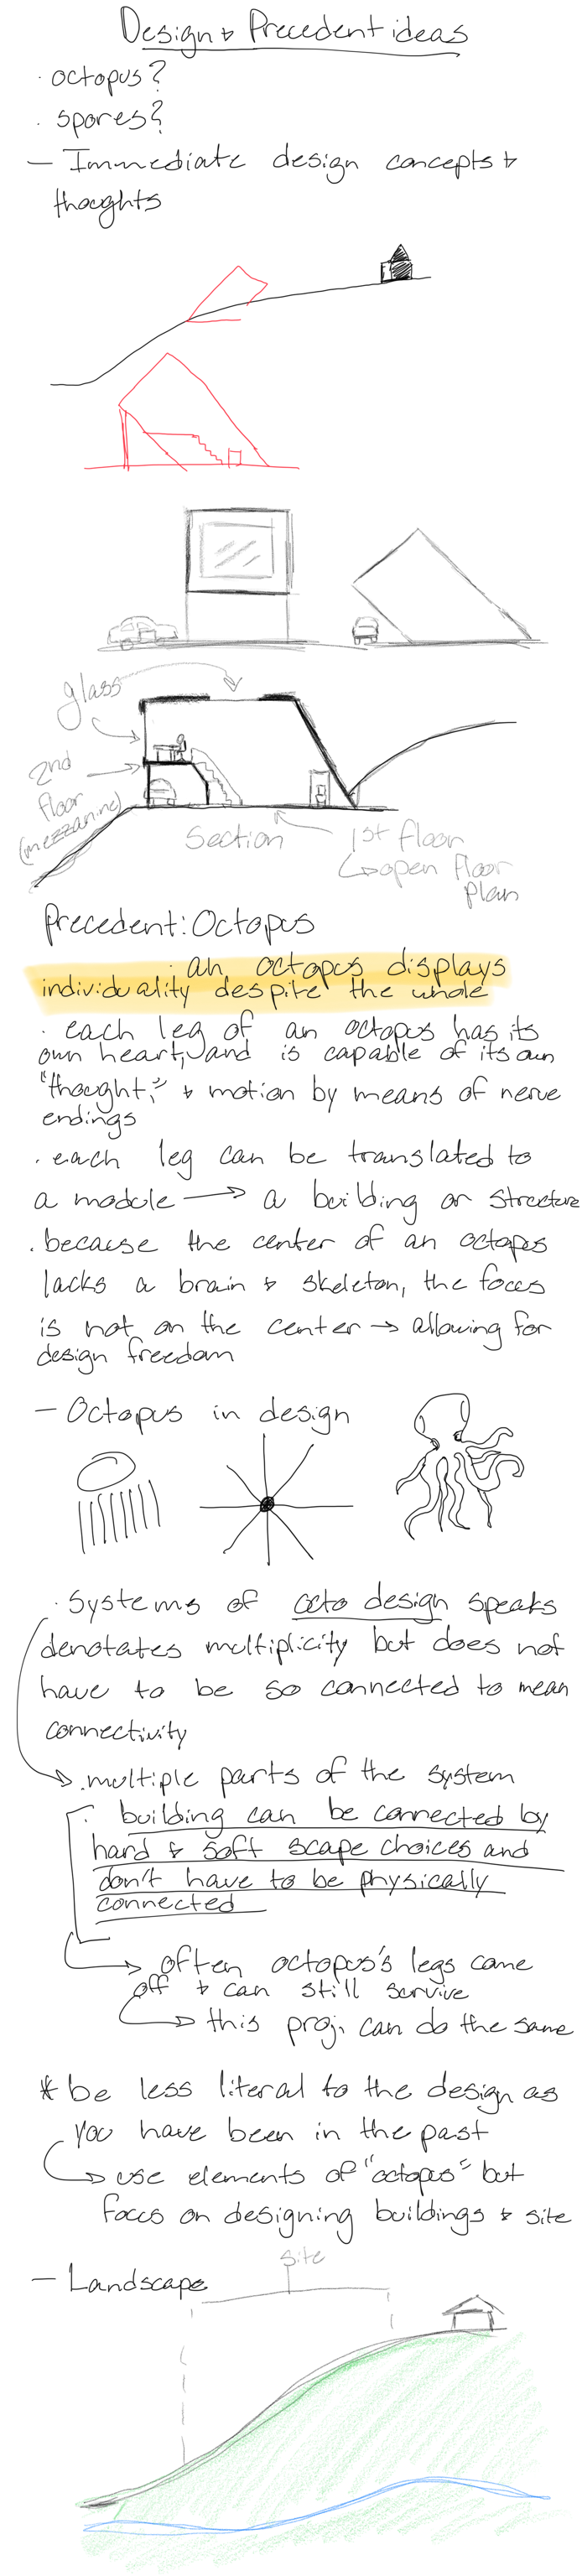 Design & Precedent ideas
· octopus?
· spores?
— Immediate design concepts &
thoughts
glass
2nd
floor
(mezzanine)
Section
1st floor
↳ open floor
plan
Precedent: Octopus
· an octopus displays
individuality despite the whole
· each leg of an octopus has its
own heart, and is capable of its own
"thought," & motion by means of nerve
endings
· each leg can be translated to
a module → a building or structure
· because the center of an octopus
lacks a brain & skeleton, the focus
is not on the center → allowing for
design freedom
— Octopus in design
· Systems of octo design speaks
denotates multiplicity but does not
have to be so connected to mean
connectivity
→ · multiple parts of the system
· building can be connected by
hard & soft scape choices and
don't have to be physically
connected
→ often octopus's legs come
off & can still survive
→ this proj. can do the same
* be less literal to the design as
you have been in the past
→ use elements of "octopus" but
focus on designing buildings & site
site
— Landscape